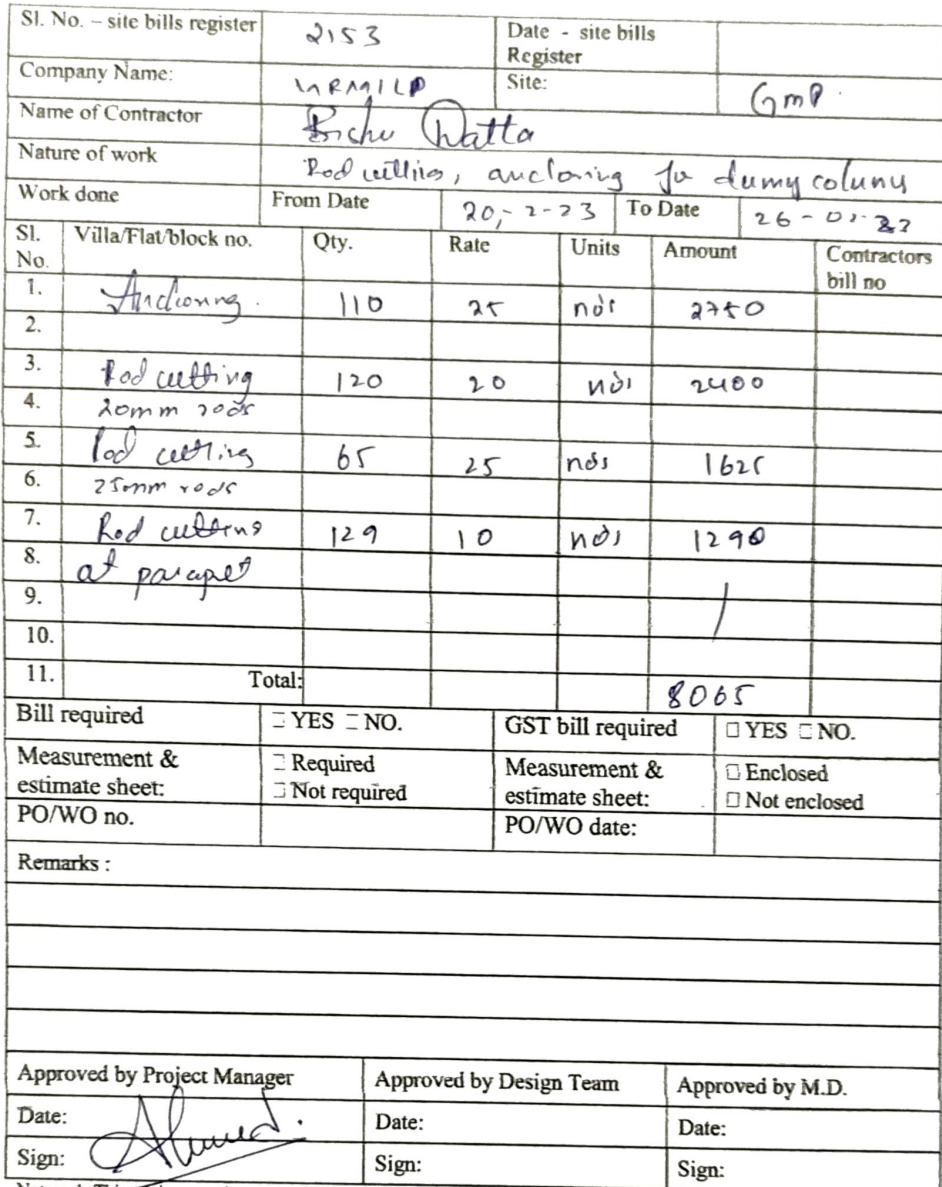 Sl. No. – site bills register 2153 Date - site bills Register
Company Name: Site: GMP
Name of Contractor Bichu Datta
Nature of work Rod cutting, ancloring for dumy colunus
Work done From Date 20-2-23 To Date
Sl. No. Villa/Flat/block no. Qty. Rate Units Amount Contractors bill no
1. Anchoring. 110 25 nos 2750
2.
3. Rod cutting 120 20 nos 2400
4. 20mm rods
5. Rod cutting 65 25 nos 1625
6. 25mm rods
7. Rod cutting 129 10 nos 1290
8. at parapet
9.
10.
11. Total: 8065
Bill required YES NO. GST bill required YES NO.
Measurement & estimate sheet: Required Not required Measurement & estimate sheet: Enclosed Not enclosed
PO/WO no. PO/WO date:
Remarks :
Approved by Project Manager Approved by Design Team Approved by M.D.
Date: Date: Date:
Sign: Sign: Sign: